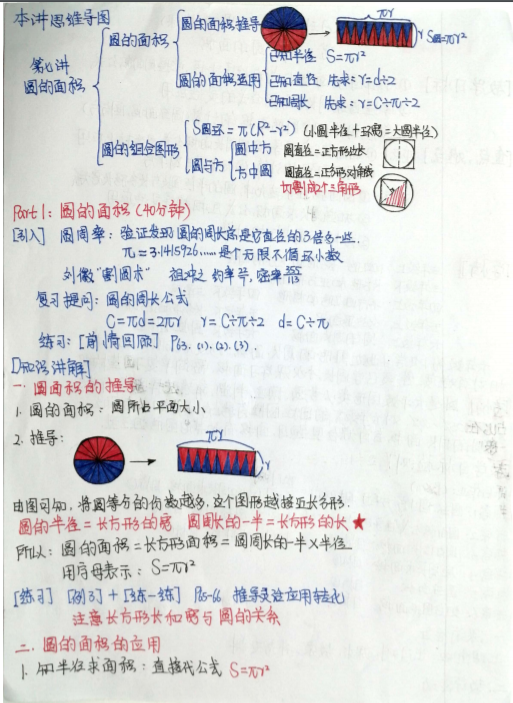 本讲思维导图
πr
圆的面积推导 → r S圆=πr²
圆的面积
已知半径 S=πr²
第七讲 圆的面积运用 已知直径 先求:r=d÷2
圆的面积 已知周长 先求:r=C÷π÷2
S圆环=π(R²-r²) (小圆半径+环宽=大圆半径)
圆的组合图形 圆中方 圆直径=正方形边长
圆与方 方中圆 圆直径=正方形对角线
切割成2个三角形
Part1:圆的面积(40分钟)
[引入] 圆周率:验证发现圆的周长总是它直径的3倍多一些.
π=3.1415926……是个无限不循环小数
刘徽"割圆术" 祖冲之 约率 密率
复习提问:圆的周长公式
C=πd=2πr r=C÷π÷2 d=C÷π
练习:[前情回顾] P63.(1).(2).(3).
[知识讲解]
一.圆面积的推导
1.圆的面积:圆所占平面大小
2.推导:
πr
→ r
由图可知,将圆等分的份数越多.这个图形越接近长方形.
圆的半径=长方形的宽 圆周长的一半=长方形的长★
所以:圆的面积=长方形面积=圆周长的一半×半径
用字母表示:S=πr²
[练习] [例3]+[3练一练] P65-66 推导灵活应用转化
注意长方形长和宽与圆的关系
二.圆的面积的应用
1.知半径求面积:直接代公式 S=πr²